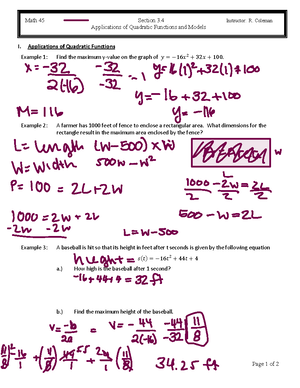 Math 45 Section 3.4 Instructor: R. Coleman
Applications of Quadratic Functions and Models
I. Applications of Quadratic Functions
Example 1: Find the maximum y-value on the graph of y = −16x² + 32x + 100.
x = -32 / 2(-16) -32 / -32 = 1 y = -16(1)² + 32(1) + 100
y = -16 + 32 + 100
M = 116 y = 116
Example 2: A farmer has 1000 feet of fence to enclose a rectangular area. What dimensions for the
rectangle result in the maximum area enclosed by the fence?
L = Length (W-500) × W
W = Width 500W - W² W
P = 100 = 2L + 2W
1000/2 - 2W/2 = 2L/2
1000 = 2W + 2L 500 - W = 2L
-2W -2W
L = W - 500
Example 3: A baseball is hit so that its height in feet after t seconds is given by the following equation
height = s(t) = −16t² + 44t + 4
a.) How high is the baseball after 1 second?
-16 + 44 + 4 = 32 ft
b.) Find the maximum height of the baseball.
v = -b / 2a = v = -44 / 2(-16) -44 / -32 11/8
34.25 ft
Page 1 of 2